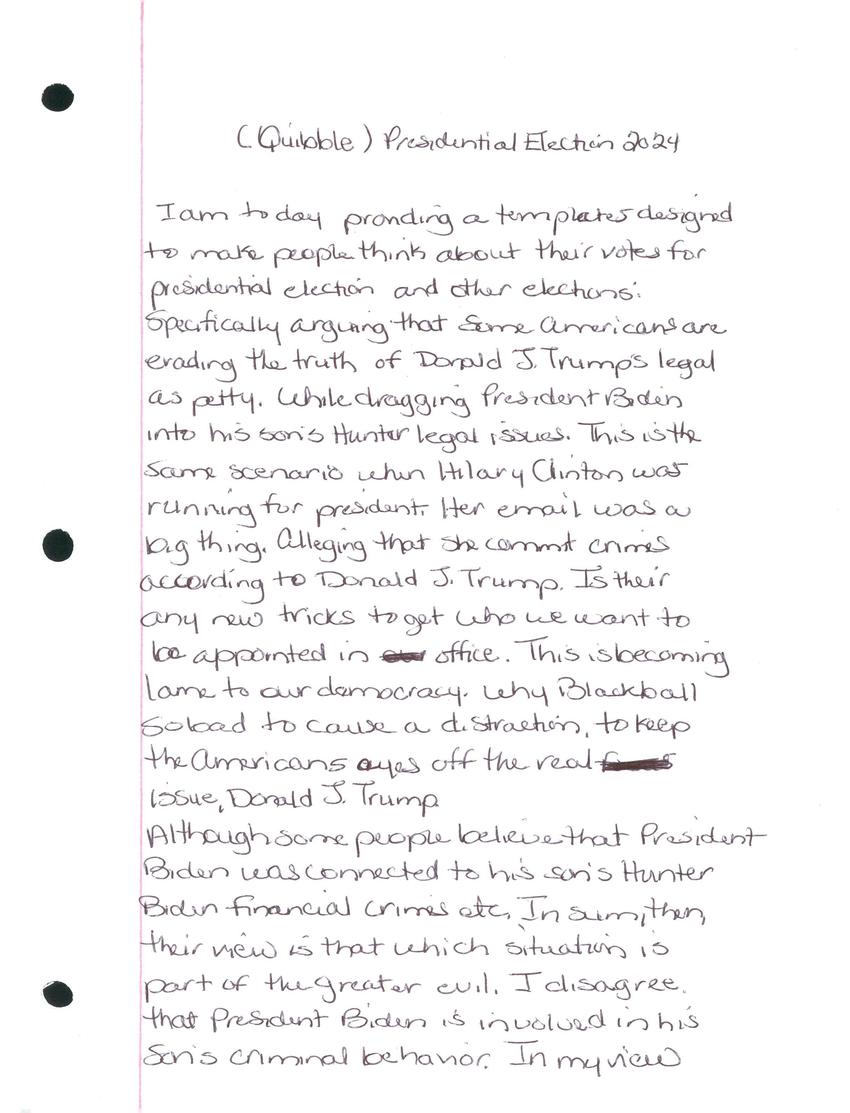 (Quibble) Presidential Election 2024
I am today providing a templates designed
to make people think about their votes for
presidential election and other elections.
Specifically arguing that some Americans are
evading the truth of Donald J. Trump's legal
as petty. While dragging President Biden
into his son's Hunter legal issues. This is the
same scenario when Hilary Clinton was
running for president. Her email was a
big thing. Alleging that she commit crimes
according to Donald J. Trump. Is their
any new tricks to get who we want to
be appointed in office. This is becoming
lame to our democracy. Why Blackball
so bad to cause a distraction, to keep
the Americans eyes off the real
issue, Donald J. Trump
Although some people believe that President
Biden was connected to his son's Hunter
Biden financial crimes etc. In sum, then,
their view is that which situation is
part of the greater evil. I disagree.
that President Biden is involved in his
Son's criminal behavior. In my view